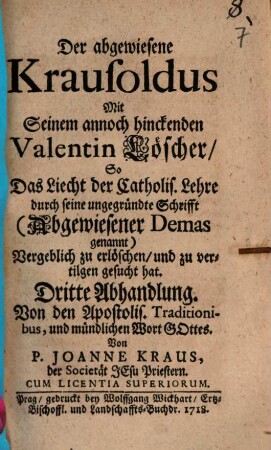 8.
7
Der abgewiesene
Krausoldus
Mit
Seinem annoch hinckenden
Valentin Löscher/
So
Das Liecht der Catholis. Lehre
durch seine ungegründte Schrifft
(Abgewiesener Demas
genannt)
Vergeblich zu erlöschen/ und zu ver-
tilgen gesucht hat.
Dritte Abhandlung.
Von den Apostolis. Traditioni-
bus, und mündlichen Wort GOttes.
Von
P. JOANNE KRAUS,
der Societät JEsu Priestern.
CUM LICENTIA SUPERIORUM.
Prag/ gedruckt bey Wolffgang Wickhart/ Ertz-
Bischoffl. und Landschaffts-Buchdr. 1718.